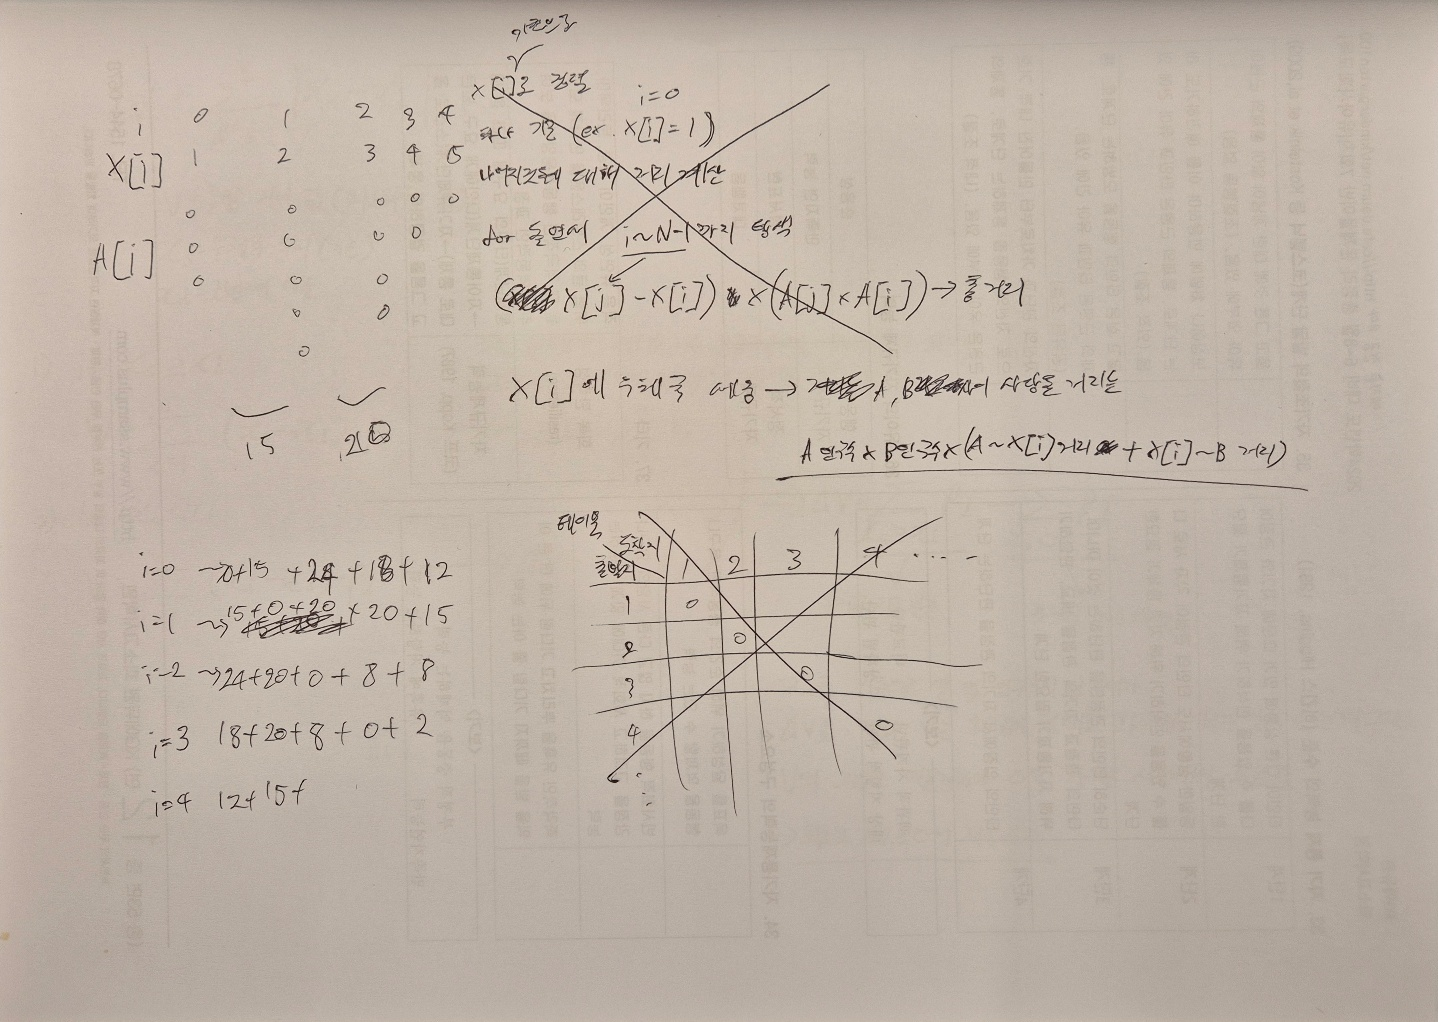 기준으로
X[i]로 정렬
i=0
하나 기준 (ex. X[i]=1)
나머지것들에 대해 거리 계산
for 돌면서 i~N-1까지 탐색
(X[j]-X[i]) x(A[j]xA[i])→총거리
i 0 1 2 3 4
X[i] 1 2 3 4 5
A[i]
15
X[i]에 우체국 세움→ A, B 사람들 거리는
A인구수xB인구수x(A~X[i]거리 + X[i]~B 거리)
테이블
도착지
출발지 1 2 3 4 ....
1 0
2 0
3 0
4 0
i=0 →0+15 +24+18+12
i=1 → 15+0+20+20+15
i=2 →24+20+0+8+8
i=3 18+20+8+0+2
i=4 12+15+